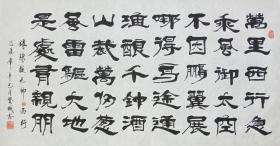 萬里西行急
乘風御太空
不因鵬翼展
哪得鳥途通
海釀千鍾酒
山栽萬仞葱
風雷驅大地
是處有親朋
陳毅元帥西行